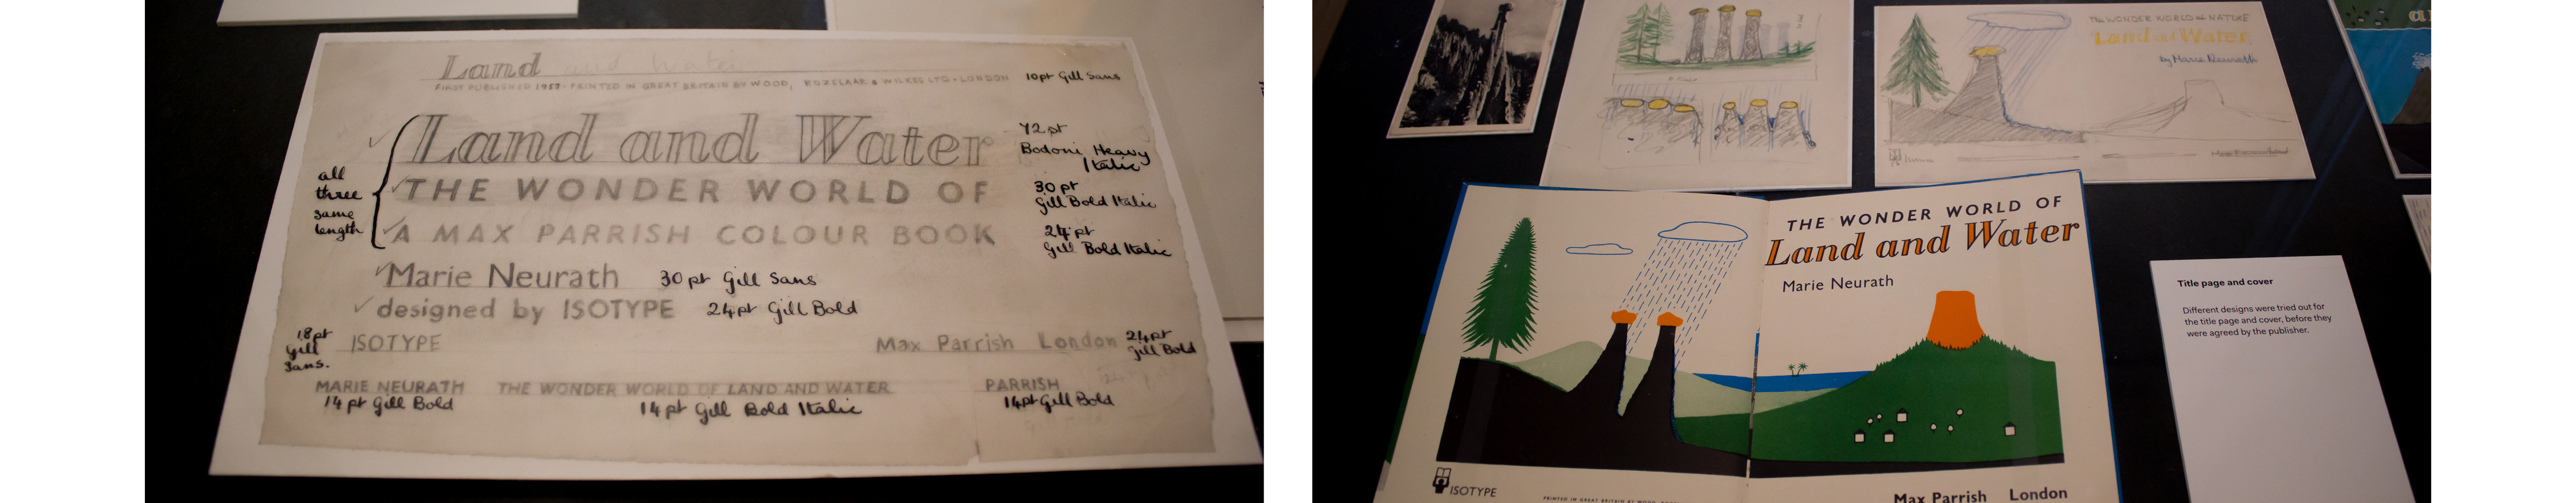 Land and Water
FIRST PUBLISHED 1957 · PRINTED IN GREAT BRITAIN BY WOOD, ROZELAAR & WILKES LTD · LONDON 10pt Gill Sans
Land and Water
72 pt
Bodoni Heavy
Italic
all
three
same
length
THE WONDER WORLD OF
30 pt
Gill Bold Italic
A MAX PARRISH COLOUR BOOK
24 pt
Gill Bold Italic
Marie Neurath 30 pt Gill Sans
designed by ISOTYPE 24pt Gill Bold
18pt
Gill
Sans.
ISOTYPE
Max Parrish London
24pt
Gill Bold
MARIE NEURATH THE WONDER WORLD OF LAND AND WATER PARRISH
14 pt Gill Bold 14 pt Gill Bold Italic 14pt Gill Bold
THE WONDER WORLD OF NATURE
Land and Water
by Marie Neurath
THE WONDER WORLD OF
Land and Water
Marie Neurath
ISOTYPE
PRINTED IN GREAT BRITAIN BY WOOD,
Max Parrish London
Title page and cover
Different designs were tried out for
the title page and cover, before they
were agreed by the publisher.